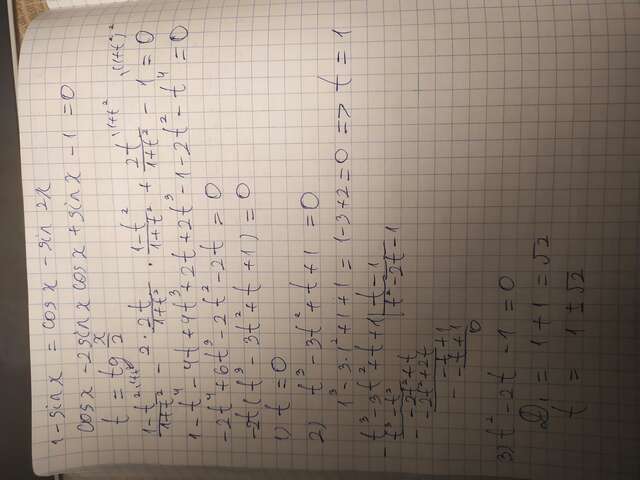 1 - sin x = cos x - sin 2x
cos x - 2 sin x cos x + sin x - 1 = 0
t = tg x/2
(1-t²)/(1+t²) \1+t² - 2 · 2t/(1+t²) · (1-t²)/(1+t²) + 2t/(1+t²) \1+t² - 1 \(1+t²)² = 0
1 - t⁴ - 4t + 4t³ + 2t + 2t³ - 1 - 2t² - t⁴ = 0
-2t⁴ + 6t³ - 2t² - 2t = 0
-2t(t³ - 3t² + t + 1) = 0
1) t = 0
2) t³ - 3t² + t + 1 = 0
1³ - 3·1² + 1 + 1 = 1 - 3 + 2 = 0 => t = 1
- t³ - 3t² + t + 1 | t - 1
t³ - t² | t² - 2t - 1
- -2t² + t
-2t² + 2t
- -t + 1
-t + 1
0
3) t² - 2t - 1 = 0
D₁ = 1 + 1 = √2
t = 1 ± √2